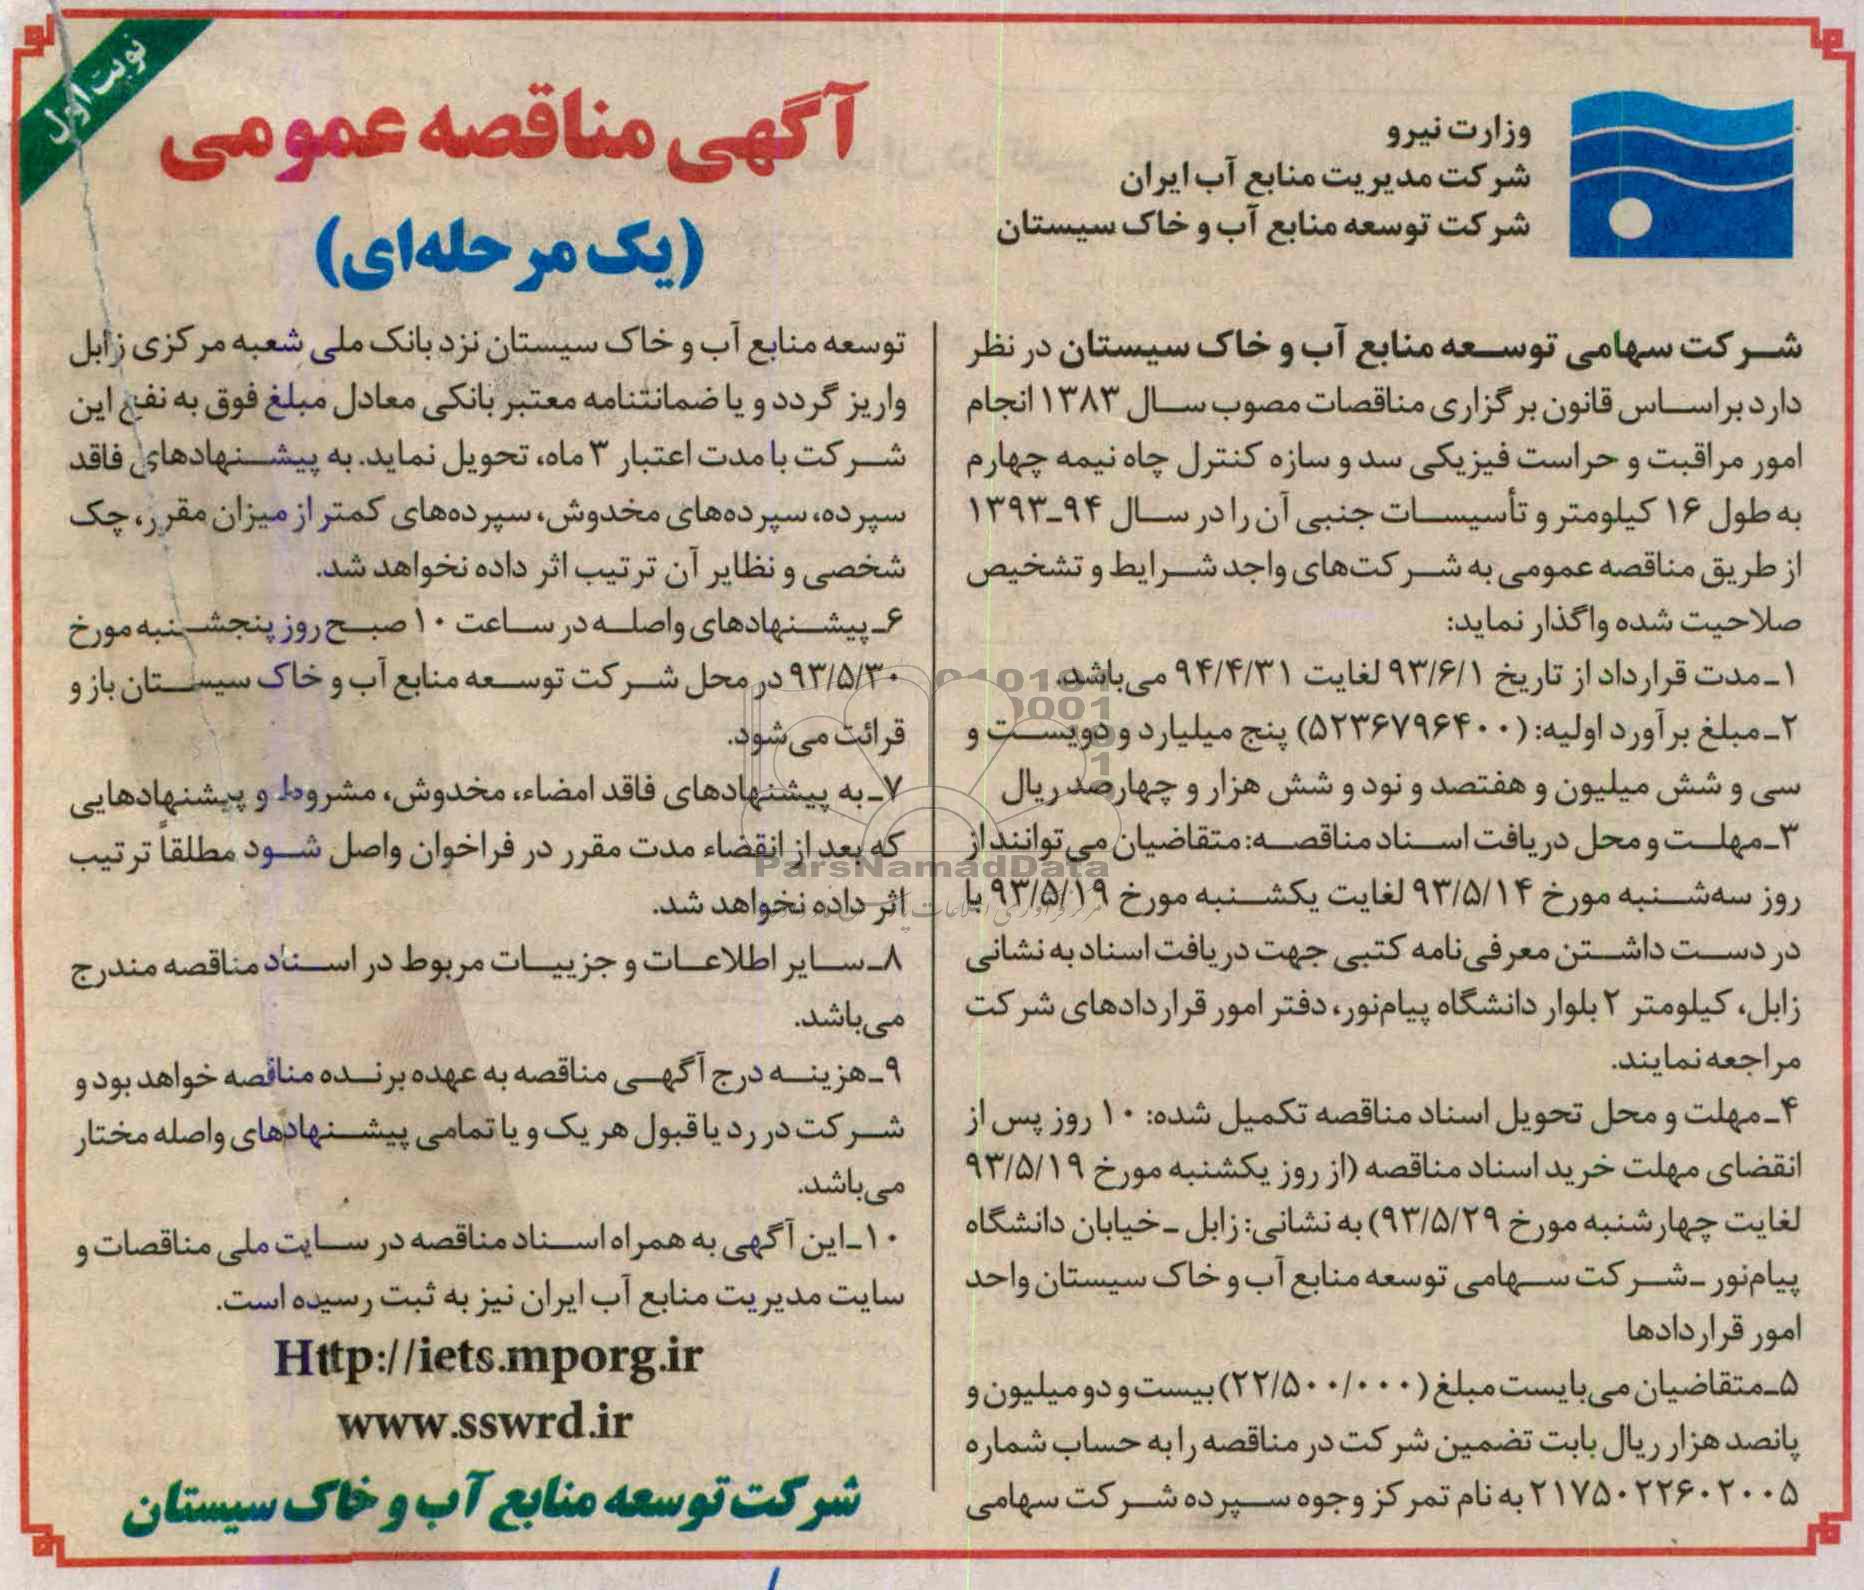 نوبت اول
وزارت نیرو
شرکت مدیریت منابع آب ایران
شرکت توسعه منابع آب و خاک سیستان
آگهی مناقصه عمومی
(یک مرحله‌ای)
شرکت سهامی توسعه منابع آب و خاک سیستان در نظر
دارد براساس قانون برگزاری مناقصات مصوب سال ۱۳۸۳ انجام
امور مراقبت و حراست فیزیکی سد و سازه کنترل چاه نیمه چهارم
به طول ۱۶ کیلومتر و تأسیسات جنبی آن را در سال ۹۴ـ۱۳۹۳
از طریق مناقصه عمومی به شرکت‌های واجد شرایط و تشخیص
صلاحیت شده واگذار نماید:
۱ـ مدت قرارداد از تاریخ ۹۳/۶/۱ لغایت ۹۴/۴/۳۱ می‌باشد.
۲ـ مبلغ برآورد اولیه: (۵۲۳۶۷۹۶۴۰۰) پنج میلیارد و دویست و
سی و شش میلیون و هفتصد و نود و شش هزار و چهارصد ریال
۳ـ مهلت و محل دریافت اسناد مناقصه: متقاضیان می‌توانند از
روز سه‌شنبه مورخ ۹۳/۵/۱۴ لغایت یکشنبه مورخ ۹۳/۵/۱۹ با
در دست داشتن معرفی‌نامه کتبی جهت دریافت اسناد به نشانی
زابل، کیلومتر ۲ بلوار دانشگاه پیام‌نور، دفتر امور قراردادهای شرکت
مراجعه نمایند.
۴ـ مهلت و محل تحویل اسناد مناقصه تکمیل شده: ۱۰ روز پس از
انقضای مهلت خرید اسناد مناقصه (از روز یکشنبه مورخ ۹۳/۵/۱۹
لغایت چهارشنبه مورخ ۹۳/۵/۲۹) به نشانی: زابل ـ خیابان دانشگاه
پیام‌نور ـ شرکت سهامی توسعه منابع آب و خاک سیستان واحد
امور قراردادها
۵ـ متقاضیان می‌بایست مبلغ (۲۲/۵۰۰/۰۰۰) بیست و دو میلیون و
پانصد هزار ریال بابت تضمین شرکت در مناقصه را به حساب شماره
۲۱۷۵۰۲۲۶۰۲۰۰۵ به نام تمرکز وجوه سپرده شرکت سهامی
توسعه منابع آب و خاک سیستان نزد بانک ملی شعبه مرکزی زابل
واریز گردد و یا ضمانتنامه معتبر بانکی معادل مبلغ فوق به نفع این
شرکت با مدت اعتبار ۳ ماه، تحویل نماید. به پیشنهادهای فاقد
سپرده، سپرده‌های مخدوش، سپرده‌های کمتر از میزان مقرر، چک
شخصی و نظایر آن ترتیب اثر داده نخواهد شد.
۶ـ پیشنهادهای واصله در ساعت ۱۰ صبح روز پنجشنبه مورخ
۹۳/۵/۳۰ در محل شرکت توسعه منابع آب و خاک سیستان باز و
قرائت می‌شود.
۷ـ به پیشنهادهای فاقد امضاء، مخدوش، مشروط و پیشنهادهایی
که بعد از انقضاء مدت مقرر در فراخوان واصل شود مطلقاً ترتیب
اثر داده نخواهد شد.
۸ـ سایر اطلاعات و جزییات مربوط در اسناد مناقصه مندرج
می‌باشد.
۹ـ هزینه درج آگهی مناقصه به عهده برنده مناقصه خواهد بود و
شرکت در رد یا قبول هر یک و یا تمامی پیشنهادهای واصله مختار
می‌باشد.
۱۰ـ این آگهی به همراه اسناد مناقصه در سایت ملی مناقصات و
سایت مدیریت منابع آب ایران نیز به ثبت رسیده است.
Http://iets.mporg.ir
www.sswrd.ir
شرکت توسعه منابع آب و خاک سیستان
ParsNamadData